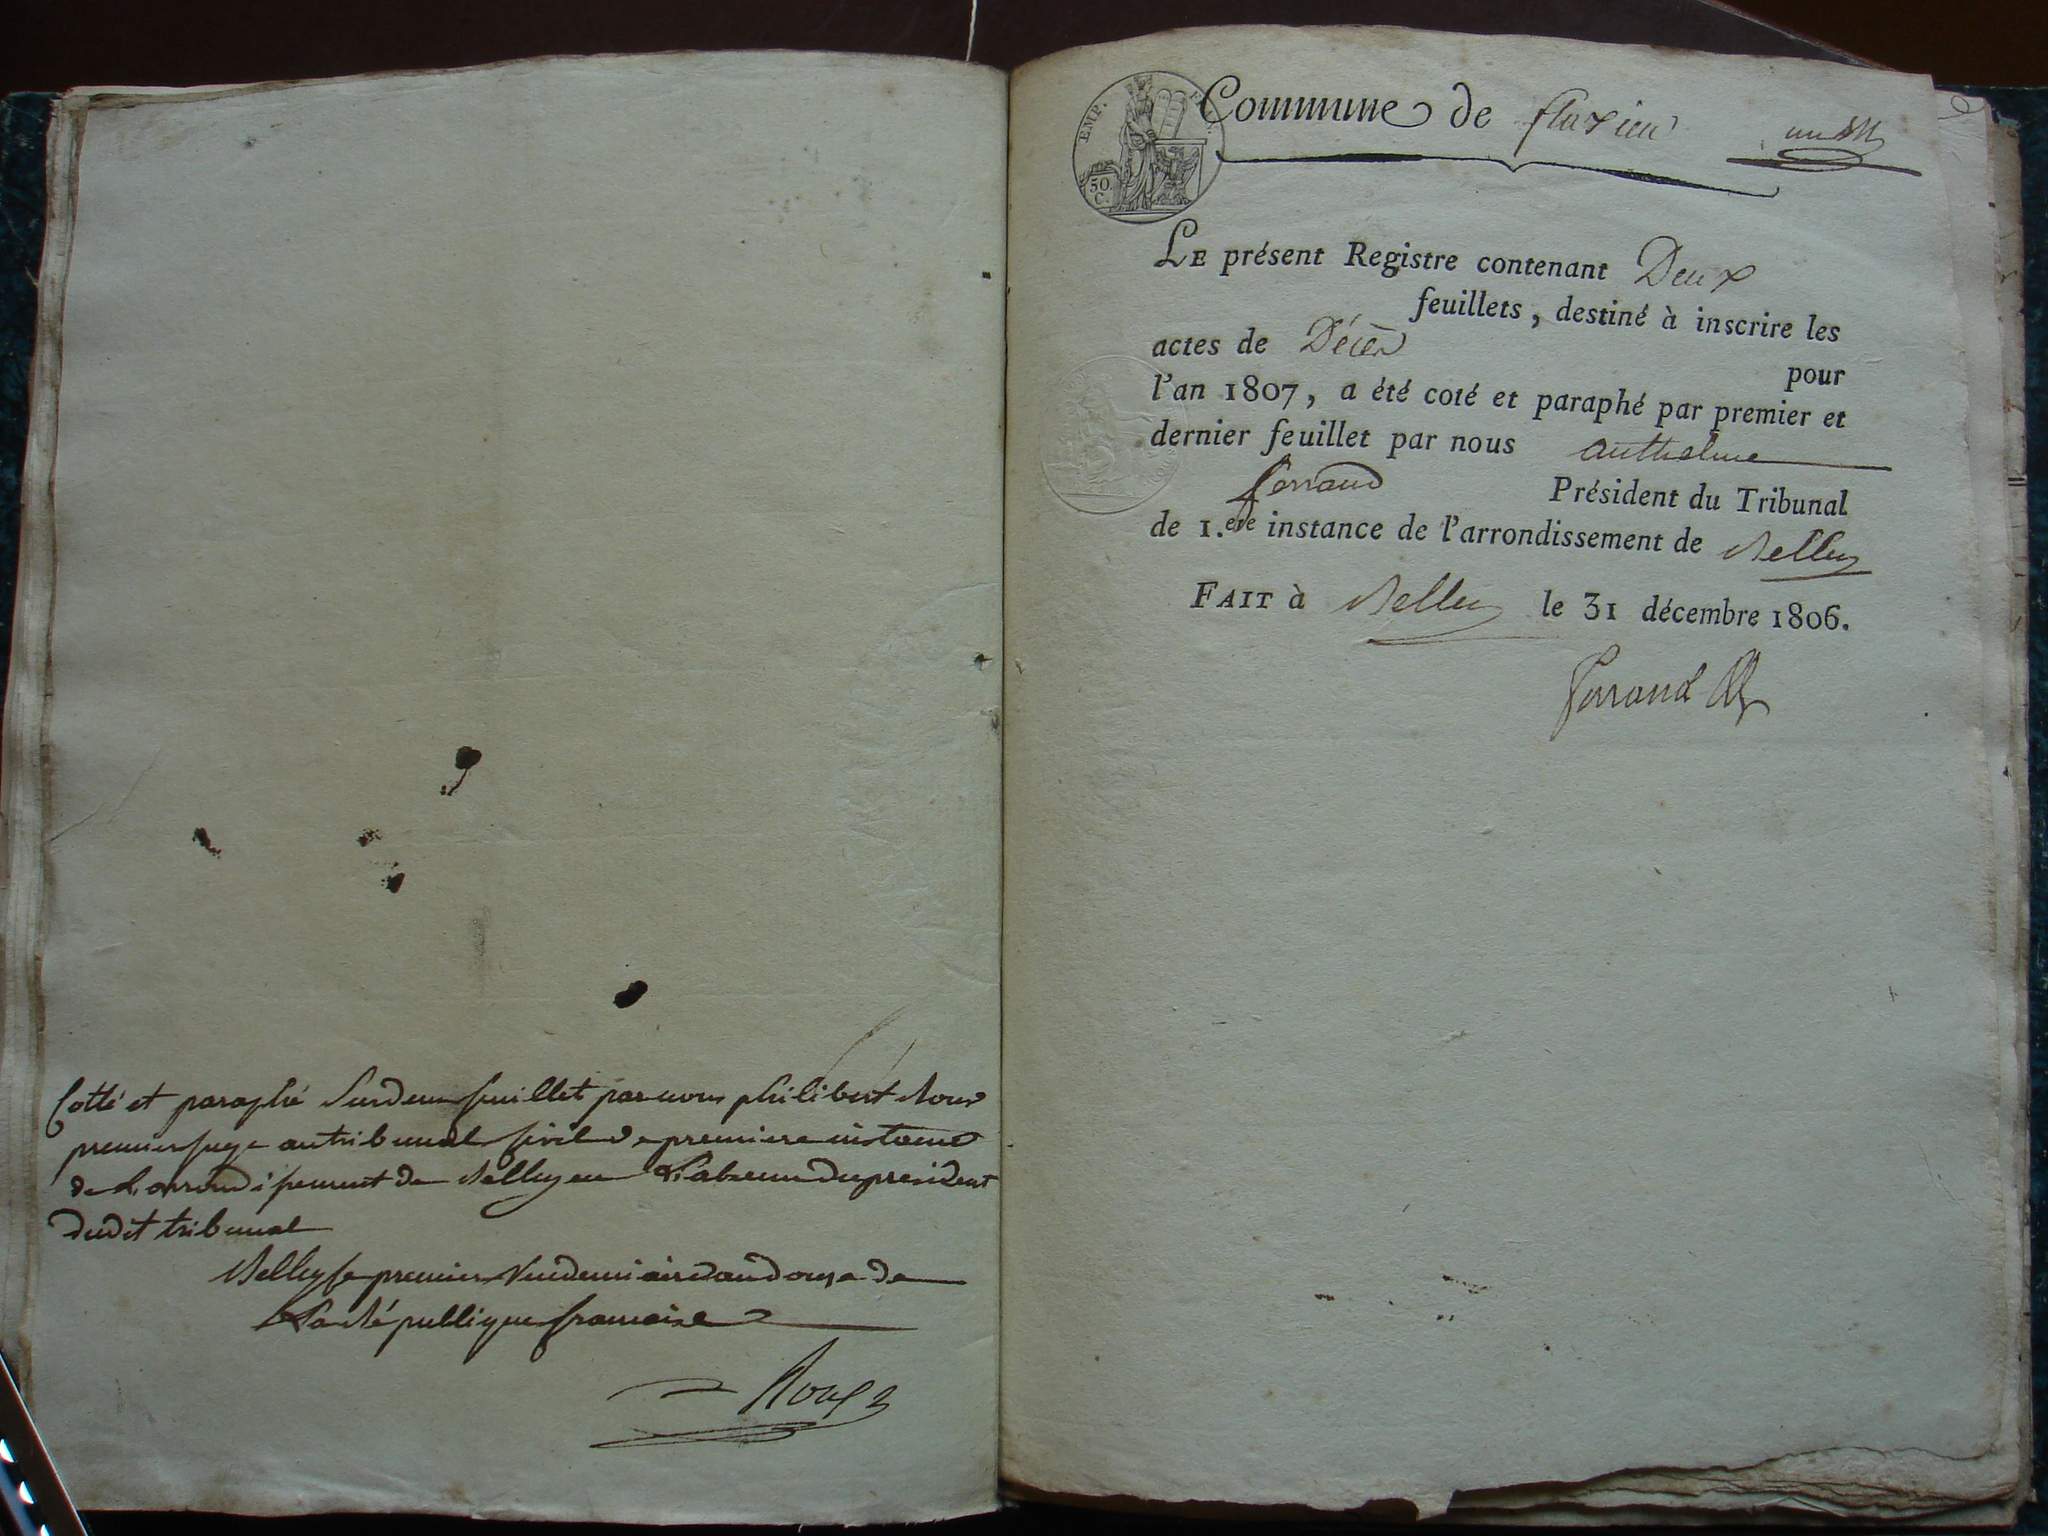 Cotté et paraphé sur deux feuillet par nous philibert Roux
premier juge au tribunal civil de premiere instance
de Larrondissement de Belley en L'absence du president
dudit tribunal
Belley le premier Vendemiaire an douze de
La République francaise
Roux
EMP.
50.
C.
Commune de flaxieu
un
LE présent Registre contenant Deux
feuillets, destiné à inscrire les
actes de Décès
pour
l'an 1807, a été coté et paraphé par premier et
dernier feuillet par nous anthelme
ferrand Président du Tribunal
de 1.ere instance de l'arrondissement de Belley
FAIT à Belley le 31 décembre 1806.
ferrand